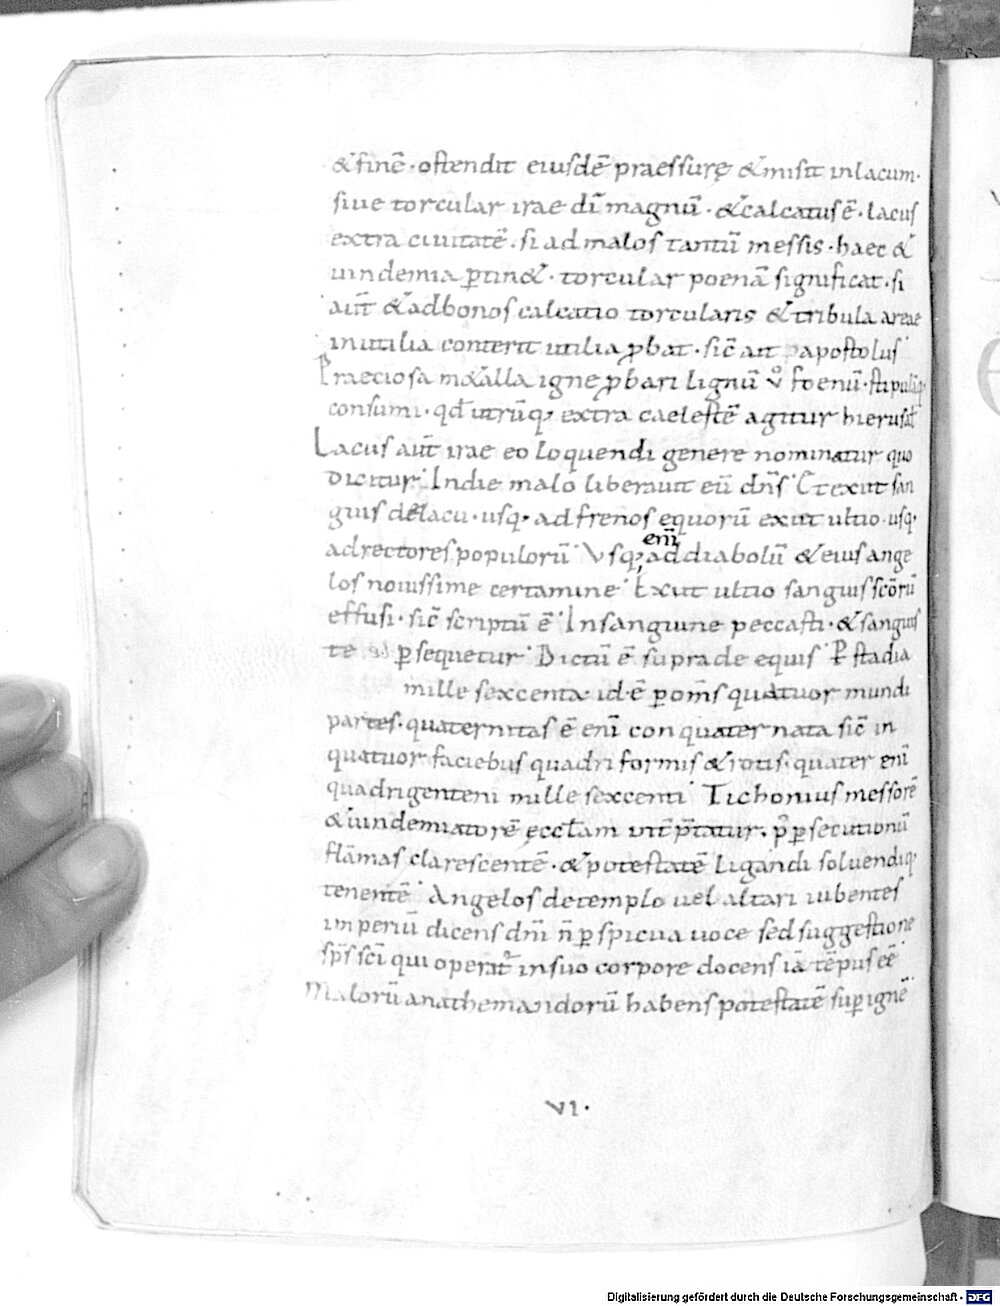 & finē · ostendit eiusdē praessurę & misit in lacum ·
siue torcular irae dī magnū · & calcatus ē · lacus
extra ciuitatē · si ad malos tantū messis · haec &
uindemia ptin& · torcular poenā significat · si
aut̄ & ad bonos calcatio torcularis & tribula areae
inutilia conterit utilia ꝓbat · sic̄ ait apostolus
Praeciosa m&alla igne ꝓbari lignū ů foenū · stipulāq;
consumi · qđ utrūq; extra caelestē agitur hierusał
Lacus aut̄ irae eo loquendi genere nominatur quo
dicitur · In die malo liberauit eū dn̄s · Et exiit san
guis de lacu · usq; ad frenos equorū exiit ultio · usq;
ad rectores populorū · Vsq; enī ad diabolū & eius ange
los nouissime certamine · Exiit ultio sanguis scōrū
effusi · sic̄ scriptū ē · In sanguine peccasti · & sanguis
te ꝑsequetur · Dictū ē supra de equis · Ꝑ stadia
mille sexcenta id · ē ꝑ om̄s quatuor mundi
partes · quaternitas ē enī conquaternata sic̄ in
quatuor faciebus quadriformis & rotis · quater enī
quadrigenteni mille sexcenti · Tichonius messorē
& uindemiatorē ęccłam int̄p̄tatur · p̊ ꝑsecutionū
flāmas clarescentē · & potestatē ligandi soluendiq;
tenentē · Angelos de templo uel altari iubentes
imperiū dicens dn̄i n̄ ꝑspicua uoce sed suggestione
sp̄s sc̄i qui operat᷑ in suo corpore docens iā tēpus eē
Malorū anathemandorū habens potestatē suꝑ ignē
VI ·
Digitalisierung gefördert durch die Deutsche Forschungsgemeinschaft - DFG